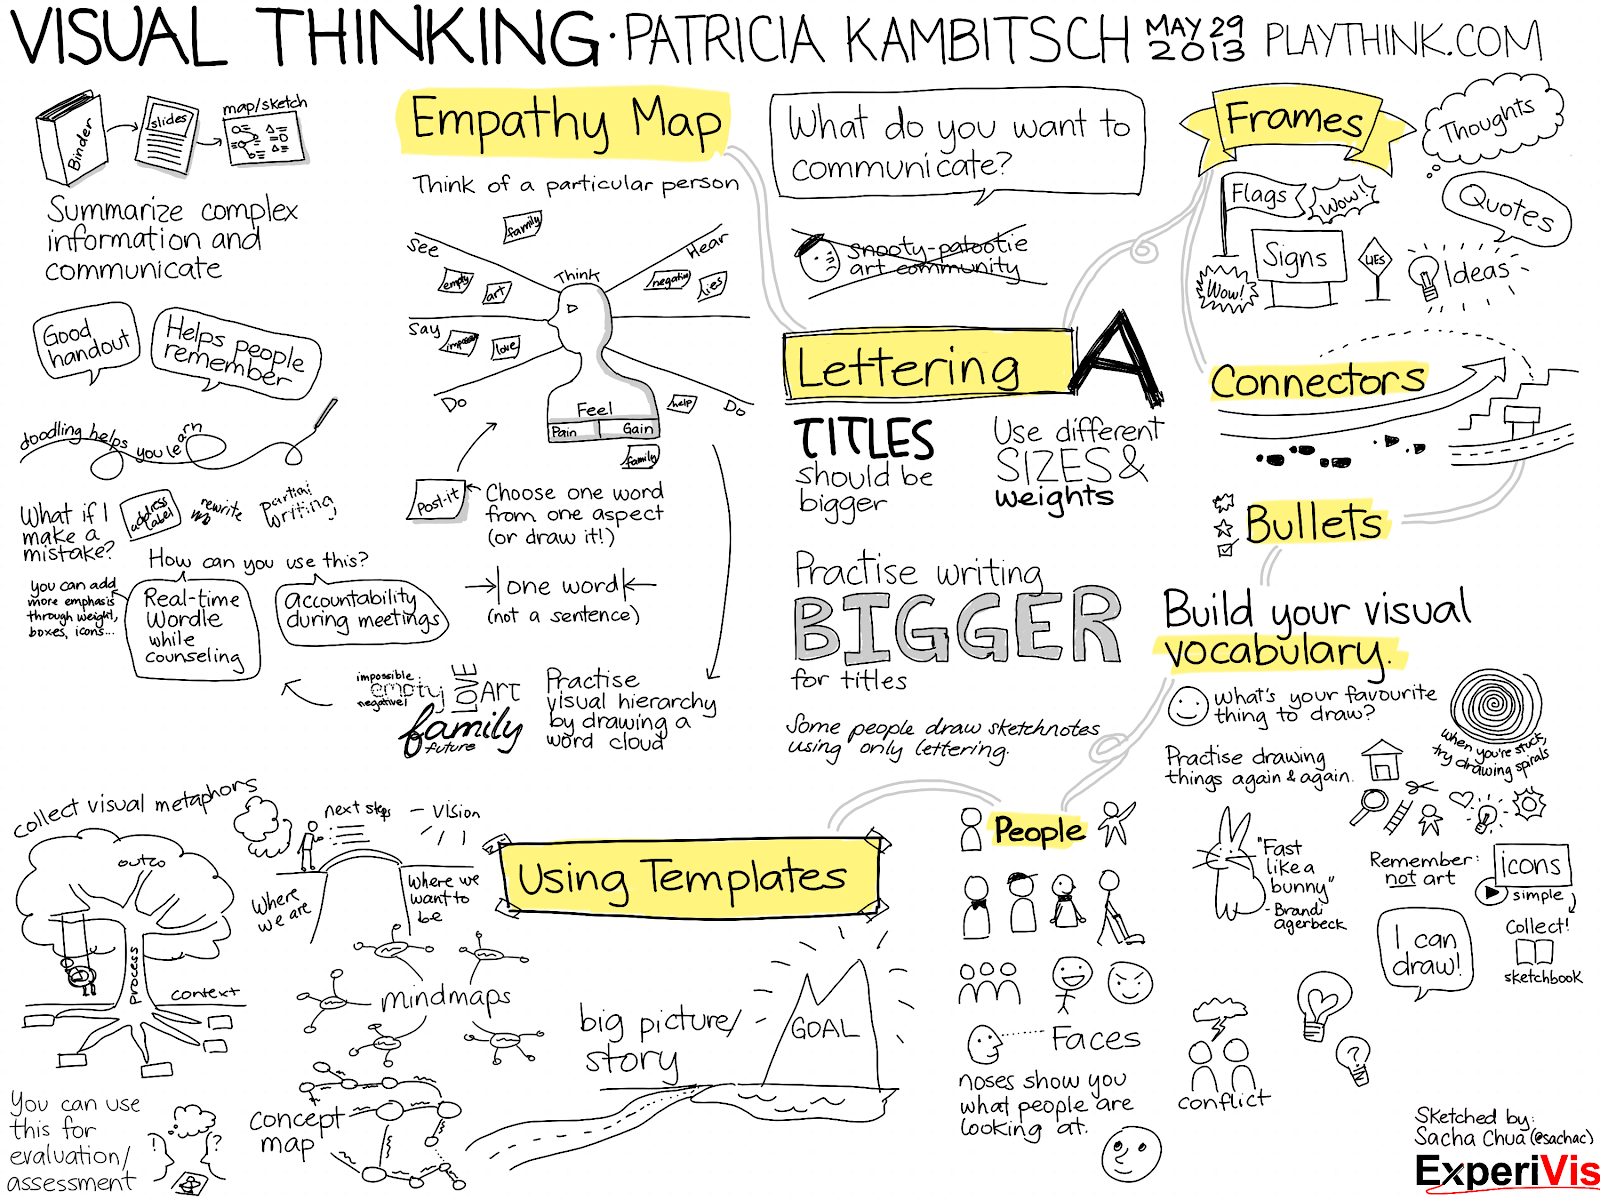 VISUAL THINKING · PATRICIA KAMBITSCH MAY 29 2013 PLAYTHINK.COM
Binder
slides
map/sketch
Summarize complex
information and
communicate
Good
handout
Helps people
remember
doodling helps you learn
What if I
make a
mistake?
address
label
rewrite
partial
writing
How can you use this?
you can add
more emphasis
through weight,
boxes, icons...
Real-time
Wordle
while
counseling
accountability
during meetings
Empathy Map
Think of a particular person
See
family
Hear
Think
empty
art
negative
lies
Say
impossible
love
Do
Feel
Pain
Gain
help
Do
family
Post-it
Choose one word
from one aspect
(or draw it!)
one word
(not a sentence)
impossible
empty
negative!
LOVE
Art
family
future
Practise
visual hierarchy
by drawing a
word cloud
What do you want to
communicate?
snooty-patootie
art community
Lettering
A
TITLES
should be
bigger
Use different
SIZES &
weights
Practise writing
BIGGER
for titles
Some people draw sketchnotes
using only lettering.
Frames
Thoughts
Flags
Wow!!
Quotes
Signs
LIES
Wow!
Ideas
Connectors
Bullets
Build your visual
vocabulary.
What's your favourite
thing to draw?
When you're stuck,
try drawing spirals
Practise drawing
things again & again.
"Fast
like a
bunny"
- Brandi
agerbeck
Remember:
not art
icons
simple
Collect!
sketchbook
I can
draw!
conflict
People
Faces
noses show you
what people are
looking at.
Using Templates
collect visual metaphors
process
context
next steps
- VISION
Where
we are
Where we
want to
be
mindmaps
concept
map
big picture/
story
GOAL
You can use
this for
evaluation/
assessment
?
Sketched by:
Sacha Chua (@sachac)
ExperiVis